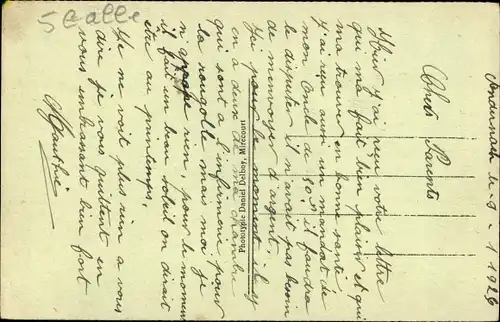 5 Calle
le 9 - 1 1926
Chers Parents
Hier j'ai reçu votre lettre
qui ma fait bien plaisir et qui
ma trouver en bonne santé
j'ai reçu aussi un mandat de
mon Oncle de 50f il faudra
le disputer il n'avait pas besoin
de m'envoyer d'argent,
Ici pour le moment il y
en a deux de ma chambre
qui sont a l'infirmerie pour
la rougolle mais moi je
n'ai rien, pour le moment
il fait un beau soleil on dirait
être au printemps,
Je ne voit plus rien a vous
dire je vous quittent en
vous embrassant bien fort
Phototypie Daniel Delboy, Mirecourt